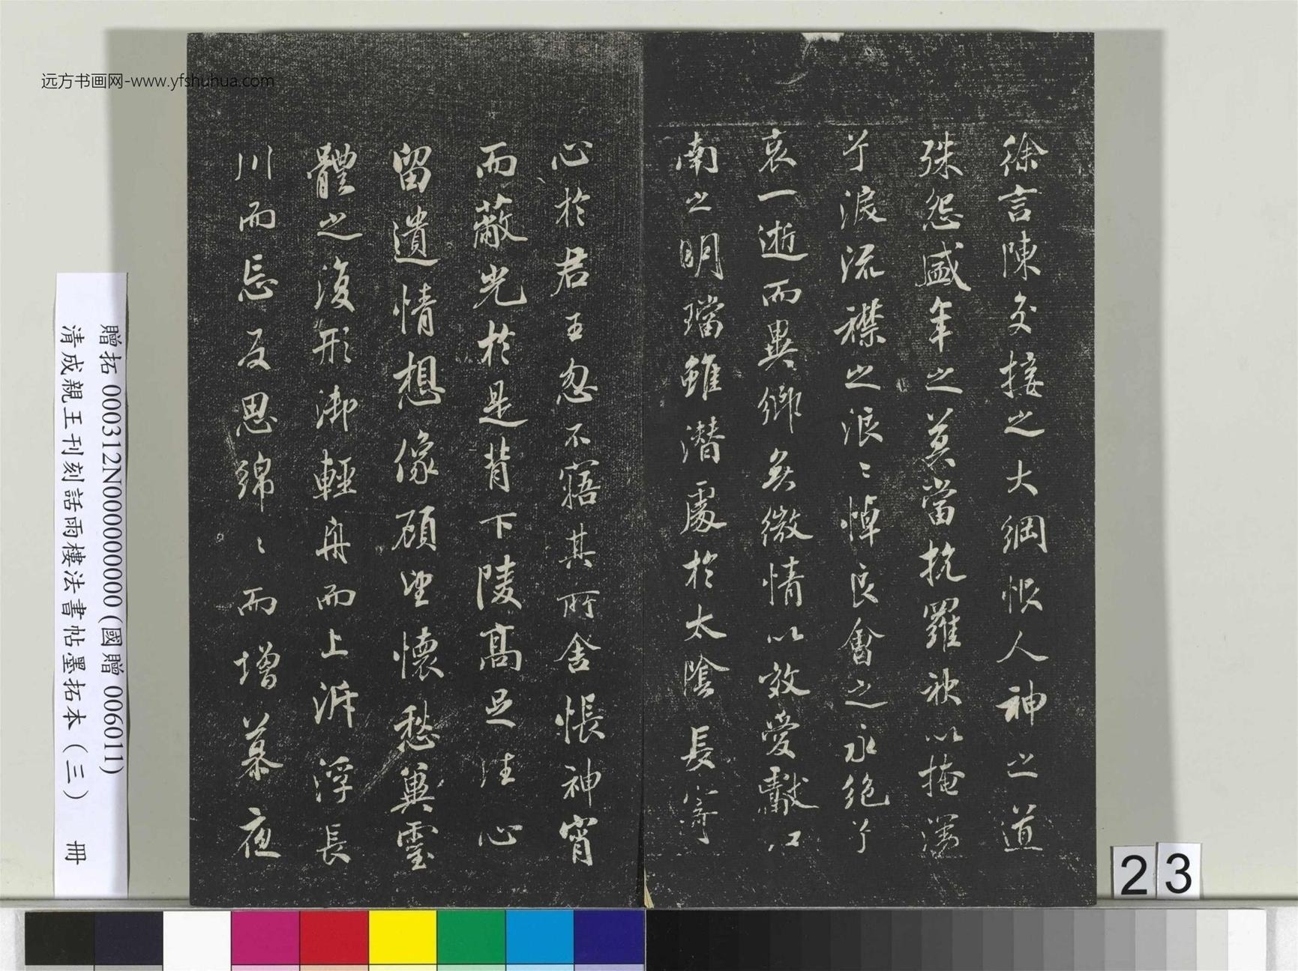 远方书画网-www.yfshuhua.com
徐言陳交接之大綱恨人神之道
殊怨盛年之莫當抗羅袂以掩涕
兮淚流襟之浪〻悼良會之永絕兮
哀一逝而異鄉無微情以效愛獻江
南之明璫雖潛處於太陰長寄
心於君王忽不寤其所舍悵神宵
而蔽光於是背下陵高足往心
留遺情想像顧望懷愁冀靈
體之復形御輕舟而上泝浮長
川而忘反思綿〻而增慕夜
贈拓 000312N000000000 (國贈 006011)
清成親王刊刻詒雨樓法書帖墨拓本（三） 冊
23